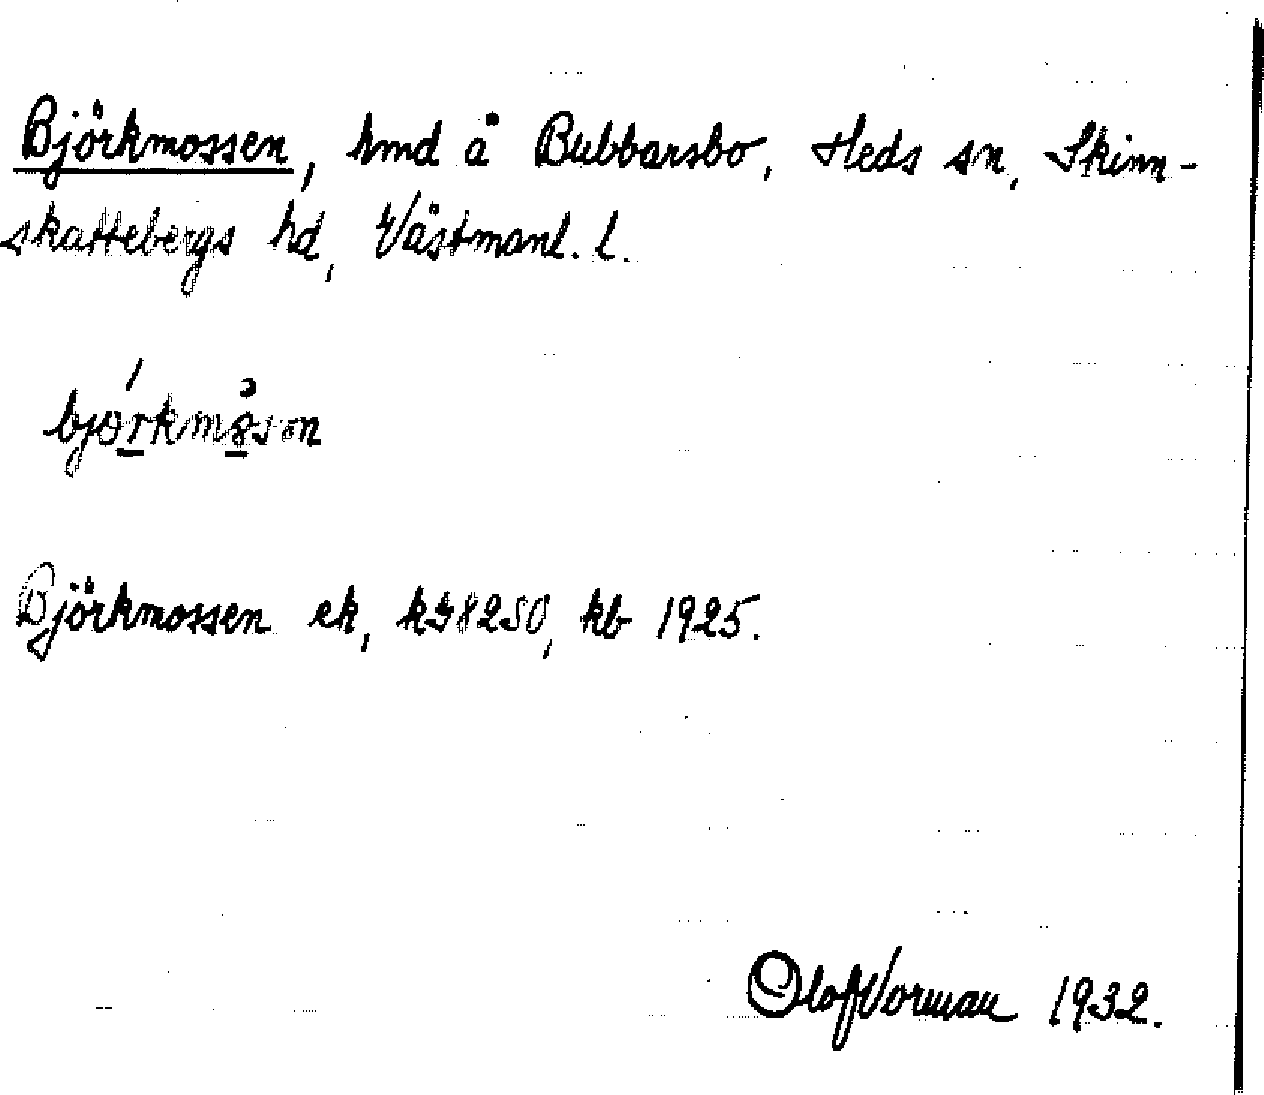 Björkmossen, hmd å Bubbarsbo, Heds sn, Skinn-
skattebergs hd, Västmanl. l.
björkmåsən
Björkmossen ek, kI8250, kb 1925.
Olof Vorman 1932.